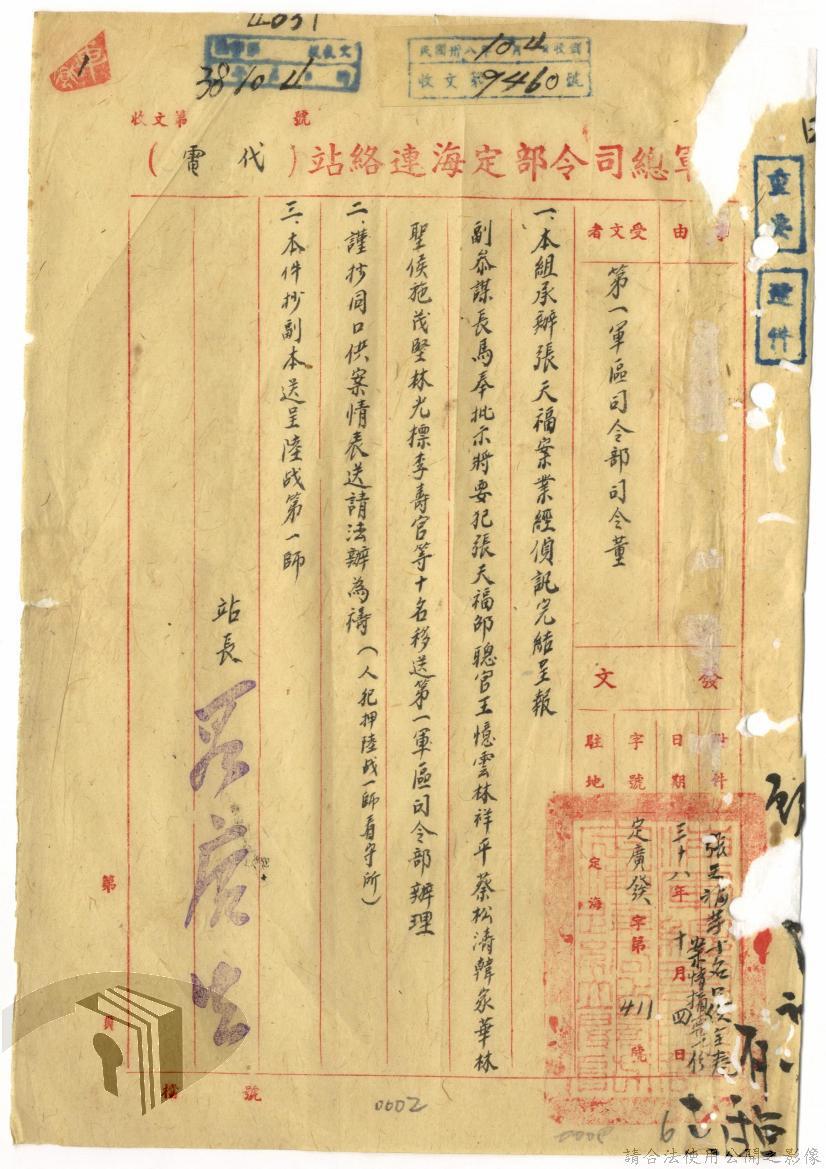 4031
38 10 4
民國卅八年10月4日收到
收文第9460號
收文第 號
軍總司令部定海連絡站（代電）
重要
證件
事由
受文者
第一軍區司令部司令董
發文
附件
張天福等十名口供全卷
案情摘要
日期
三十八年十月四日
字號
定廣發字第411號
駐地
定海
一、本組承辦張天福案業經偵訊完結呈報
副參謀長馬奉批示將要犯張天福邱聰官王憶雲林祥平蔡松濤韓家華林
聖侯施茂堅林光標李壽官等十名移送第一軍區司令部辦理
二、謹抄同口供案情表送請法辦為禱（人犯押陸战一師看守所）
三、本件抄副本送呈陸战第一師
站長
第 頁
檔 號
0002
0008
6
請合法使用公開之影像